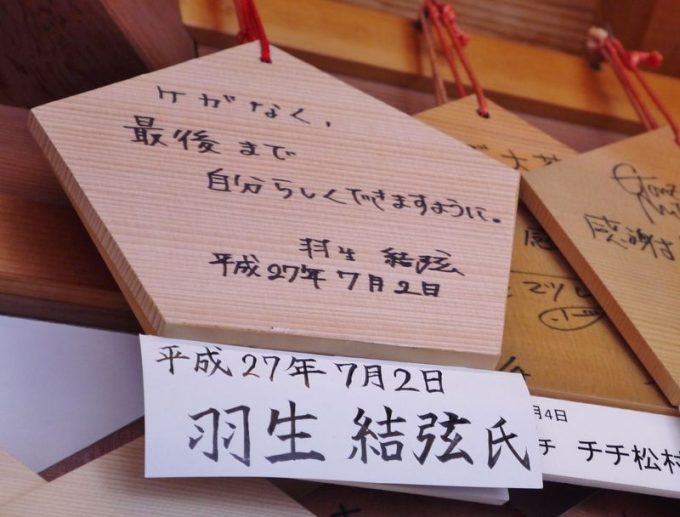 ケがなく、
最後まで
自分らしくできますように。
羽生 結弦
平成27年7月2日
平成27年7月2日
羽生 結弦氏
感謝
月4日
チ チチ松村